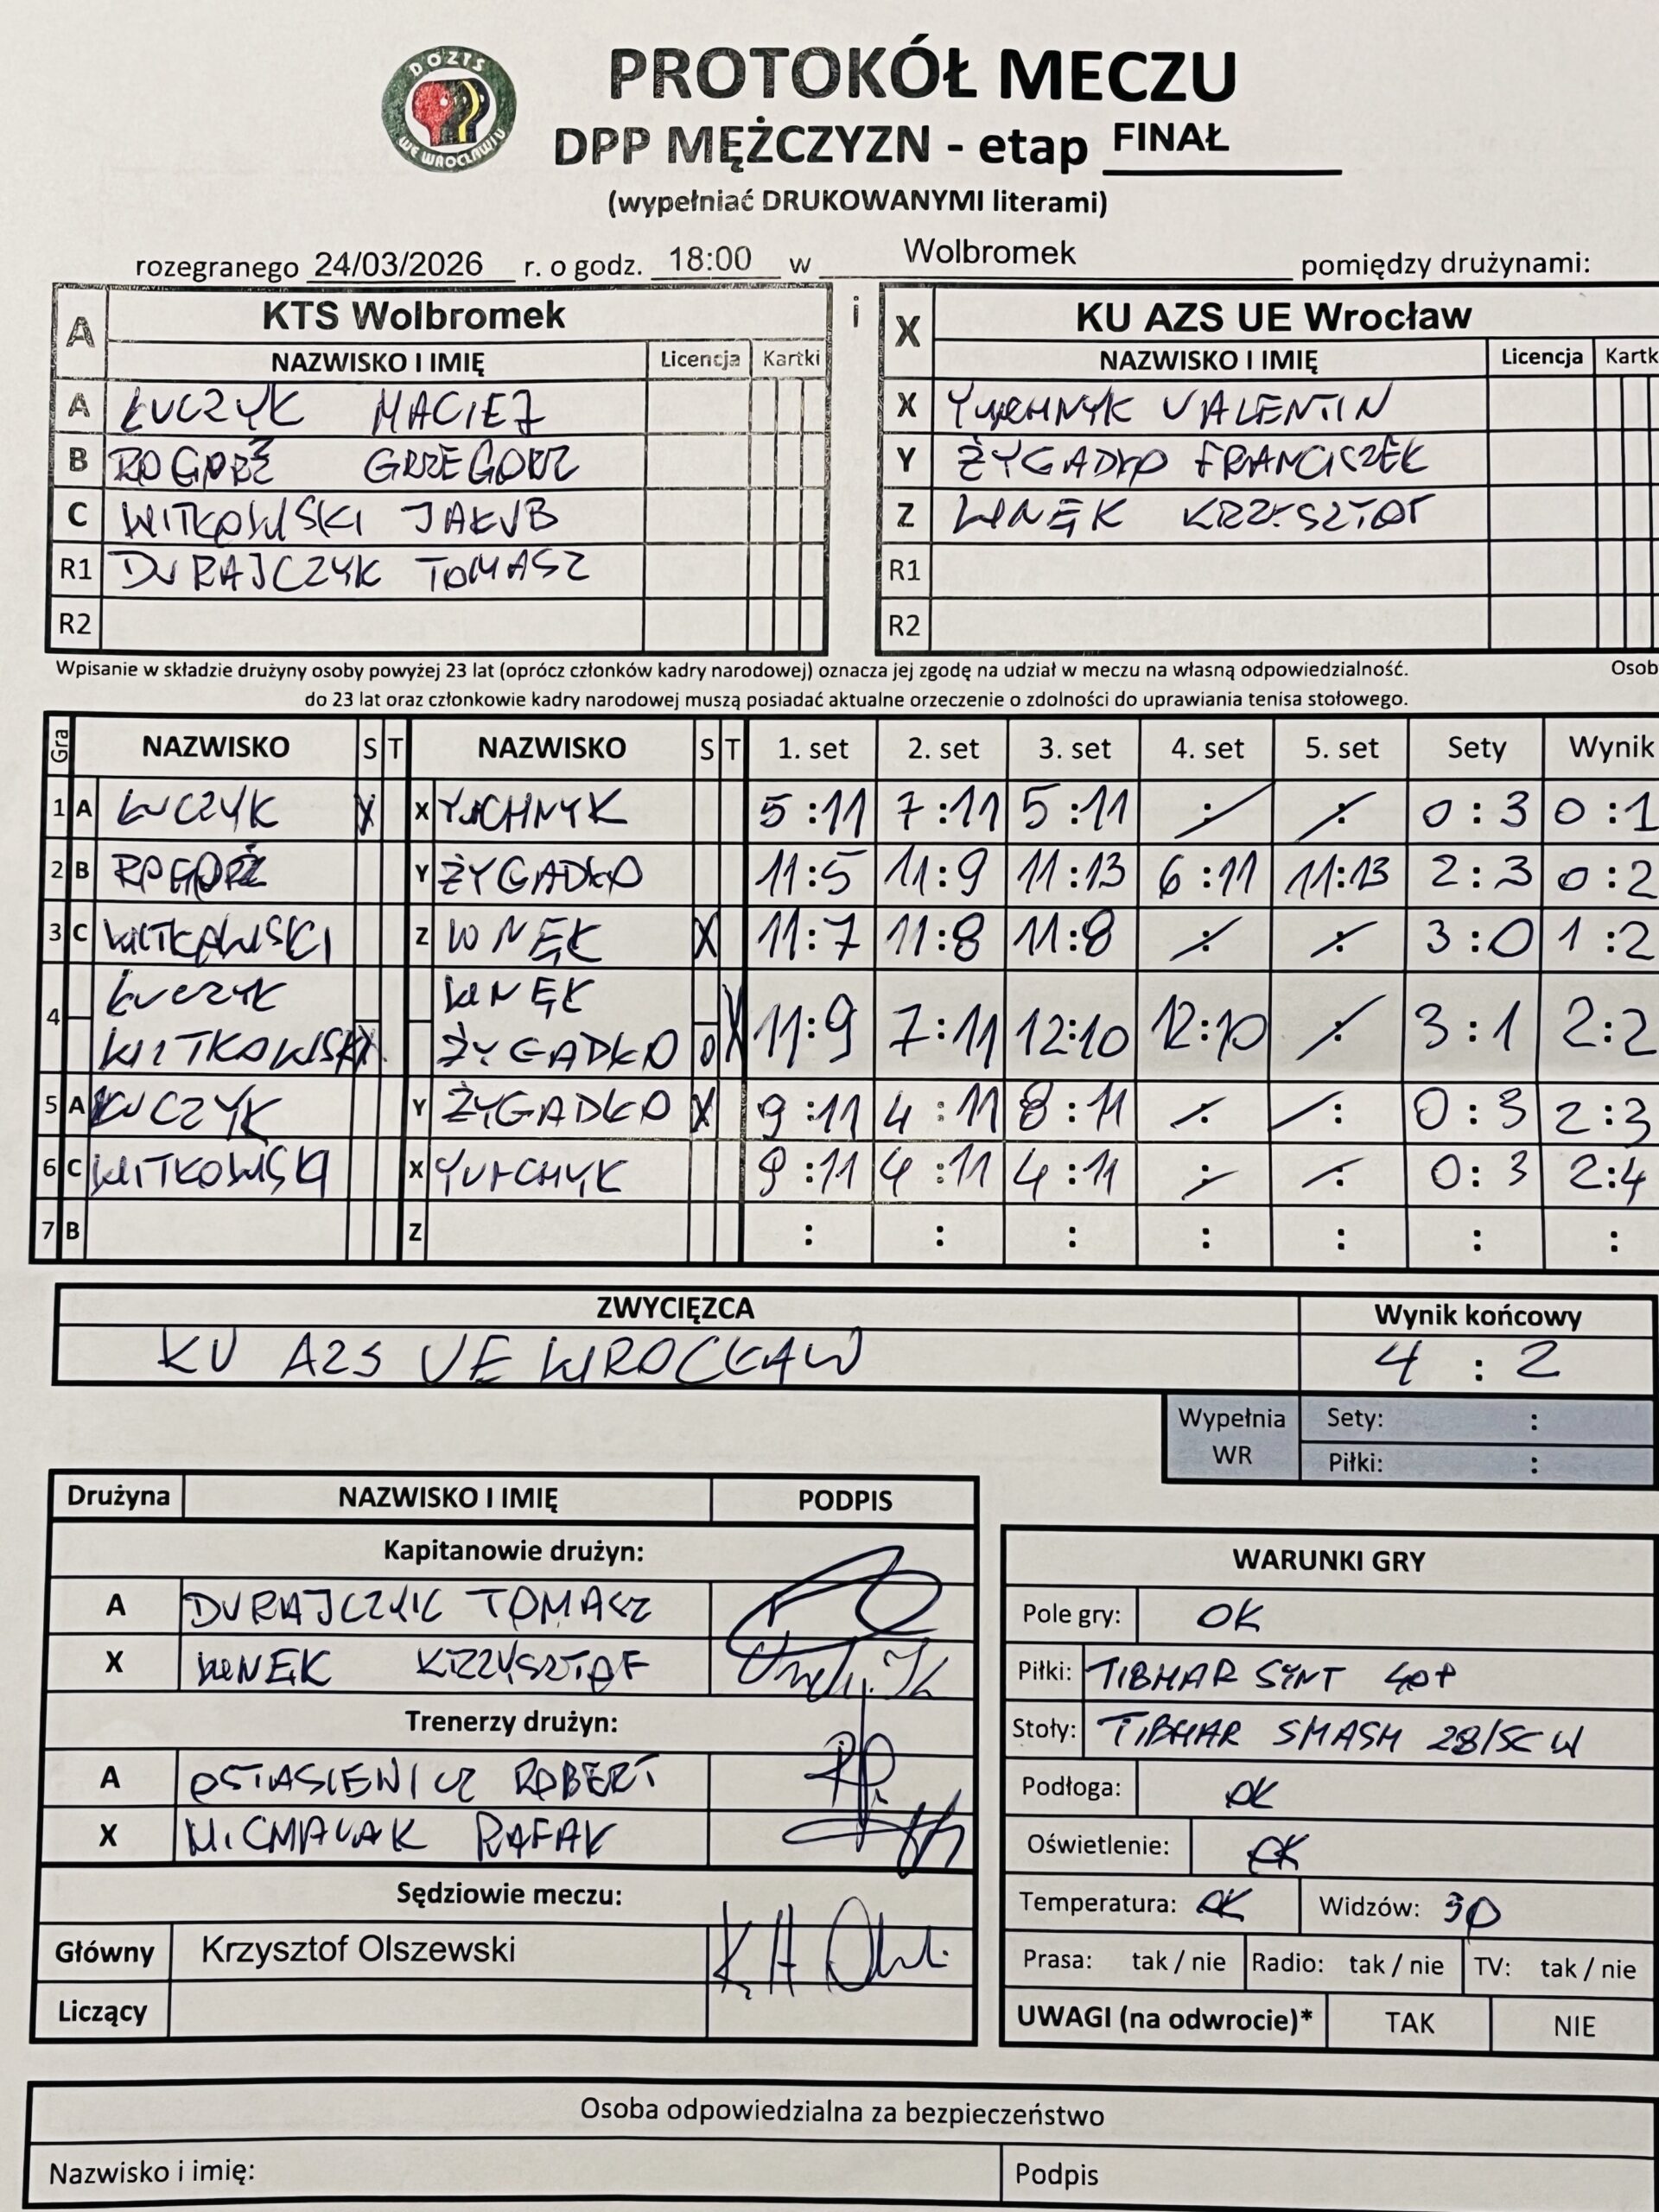 DOZTS
WE WROCŁAWIU
PROTOKÓŁ MECZU
DPP MĘŻCZYZN - etap FINAŁ
(wypełniać DRUKOWANYMI literami)
rozegranego 24/03/2026 r. o godz. 18:00 w Wolbromek pomiędzy drużynami:
A KTS Wolbromek i X KU AZS UE Wrocław
NAZWISKO I IMIĘ Licencja Kartki NAZWISKO I IMIĘ Licencja Kartk
A ŁUCZYK MACIEJ X VALENTIN
B ROGORŹ GRZEGORZ Y ŻYGADŁO FRANCISZEK
C WITKOWSKI JAKUB Z WNĘK KRZYSZTOF
R1 DURAJCZYK TOMASZ R1
R2 R2
Wpisanie w składzie drużyny osoby powyżej 23 lat (oprócz członków kadry narodowej) oznacza jej zgodę na udział w meczu na własną odpowiedzialność. Osob
do 23 lat oraz członkowie kadry narodowej muszą posiadać aktualne orzeczenie o zdolności do uprawiania tenisa stołowego.
Gra NAZWISKO S T NAZWISKO S T 1. set 2. set 3. set 4. set 5. set Sety Wynik
1 A ŁUCZYK X X YUCHNYK 5:11 7:11 5:11 : : 0:3 0:1
2 B ROGORŹ Y ŻYGADŁO 11:5 11:9 11:13 6:11 11:13 2:3 0:2
3 C WITKOWSKI Z WNĘK X 11:7 11:8 11:8 : : 3:0 1:2
4 ŁUCZYK WNĘK
WITKOWSKI X ŻYGADŁO 0 X 11:9 7:11 12:10 12:10 : 3:1 2:2
5 A ŁUCZYK Y ŻYGADŁO X 9:11 4:11 8:11 : : 0:3 2:3
6 C WITKOWSKI X 9:11 4:11 4:11 : : 0:3 2:4
7 B Z : : : : : : :
ZWYCIĘZCA Wynik końcowy
KU AZS UE WROCŁAW 4 : 2
Wypełnia WR Sety: :
Piłki: :
Drużyna NAZWISKO I IMIĘ PODPIS
Kapitanowie drużyn:
A DURAJCZYK TOMASZ
X WNĘK KRZYSZTOF
Trenerzy drużyn:
A OSTASIEWICZ ROBERT
X MICHALAK RAFAŁ
Sędziowie meczu:
Główny Krzysztof Olszewski
Liczący
WARUNKI GRY
Pole gry: OK
Piłki: TIBHAR SYNT 40+
Stoły: TIBHAR SMASH 28/SC W
Podłoga: OK
Oświetlenie: OK
Temperatura: OK Widzów: 30
Prasa: tak / nie Radio: tak / nie TV: tak / nie
UWAGI (na odwrocie)* TAK NIE
Osoba odpowiedzialna za bezpieczeństwo
Nazwisko i imię: Podpis